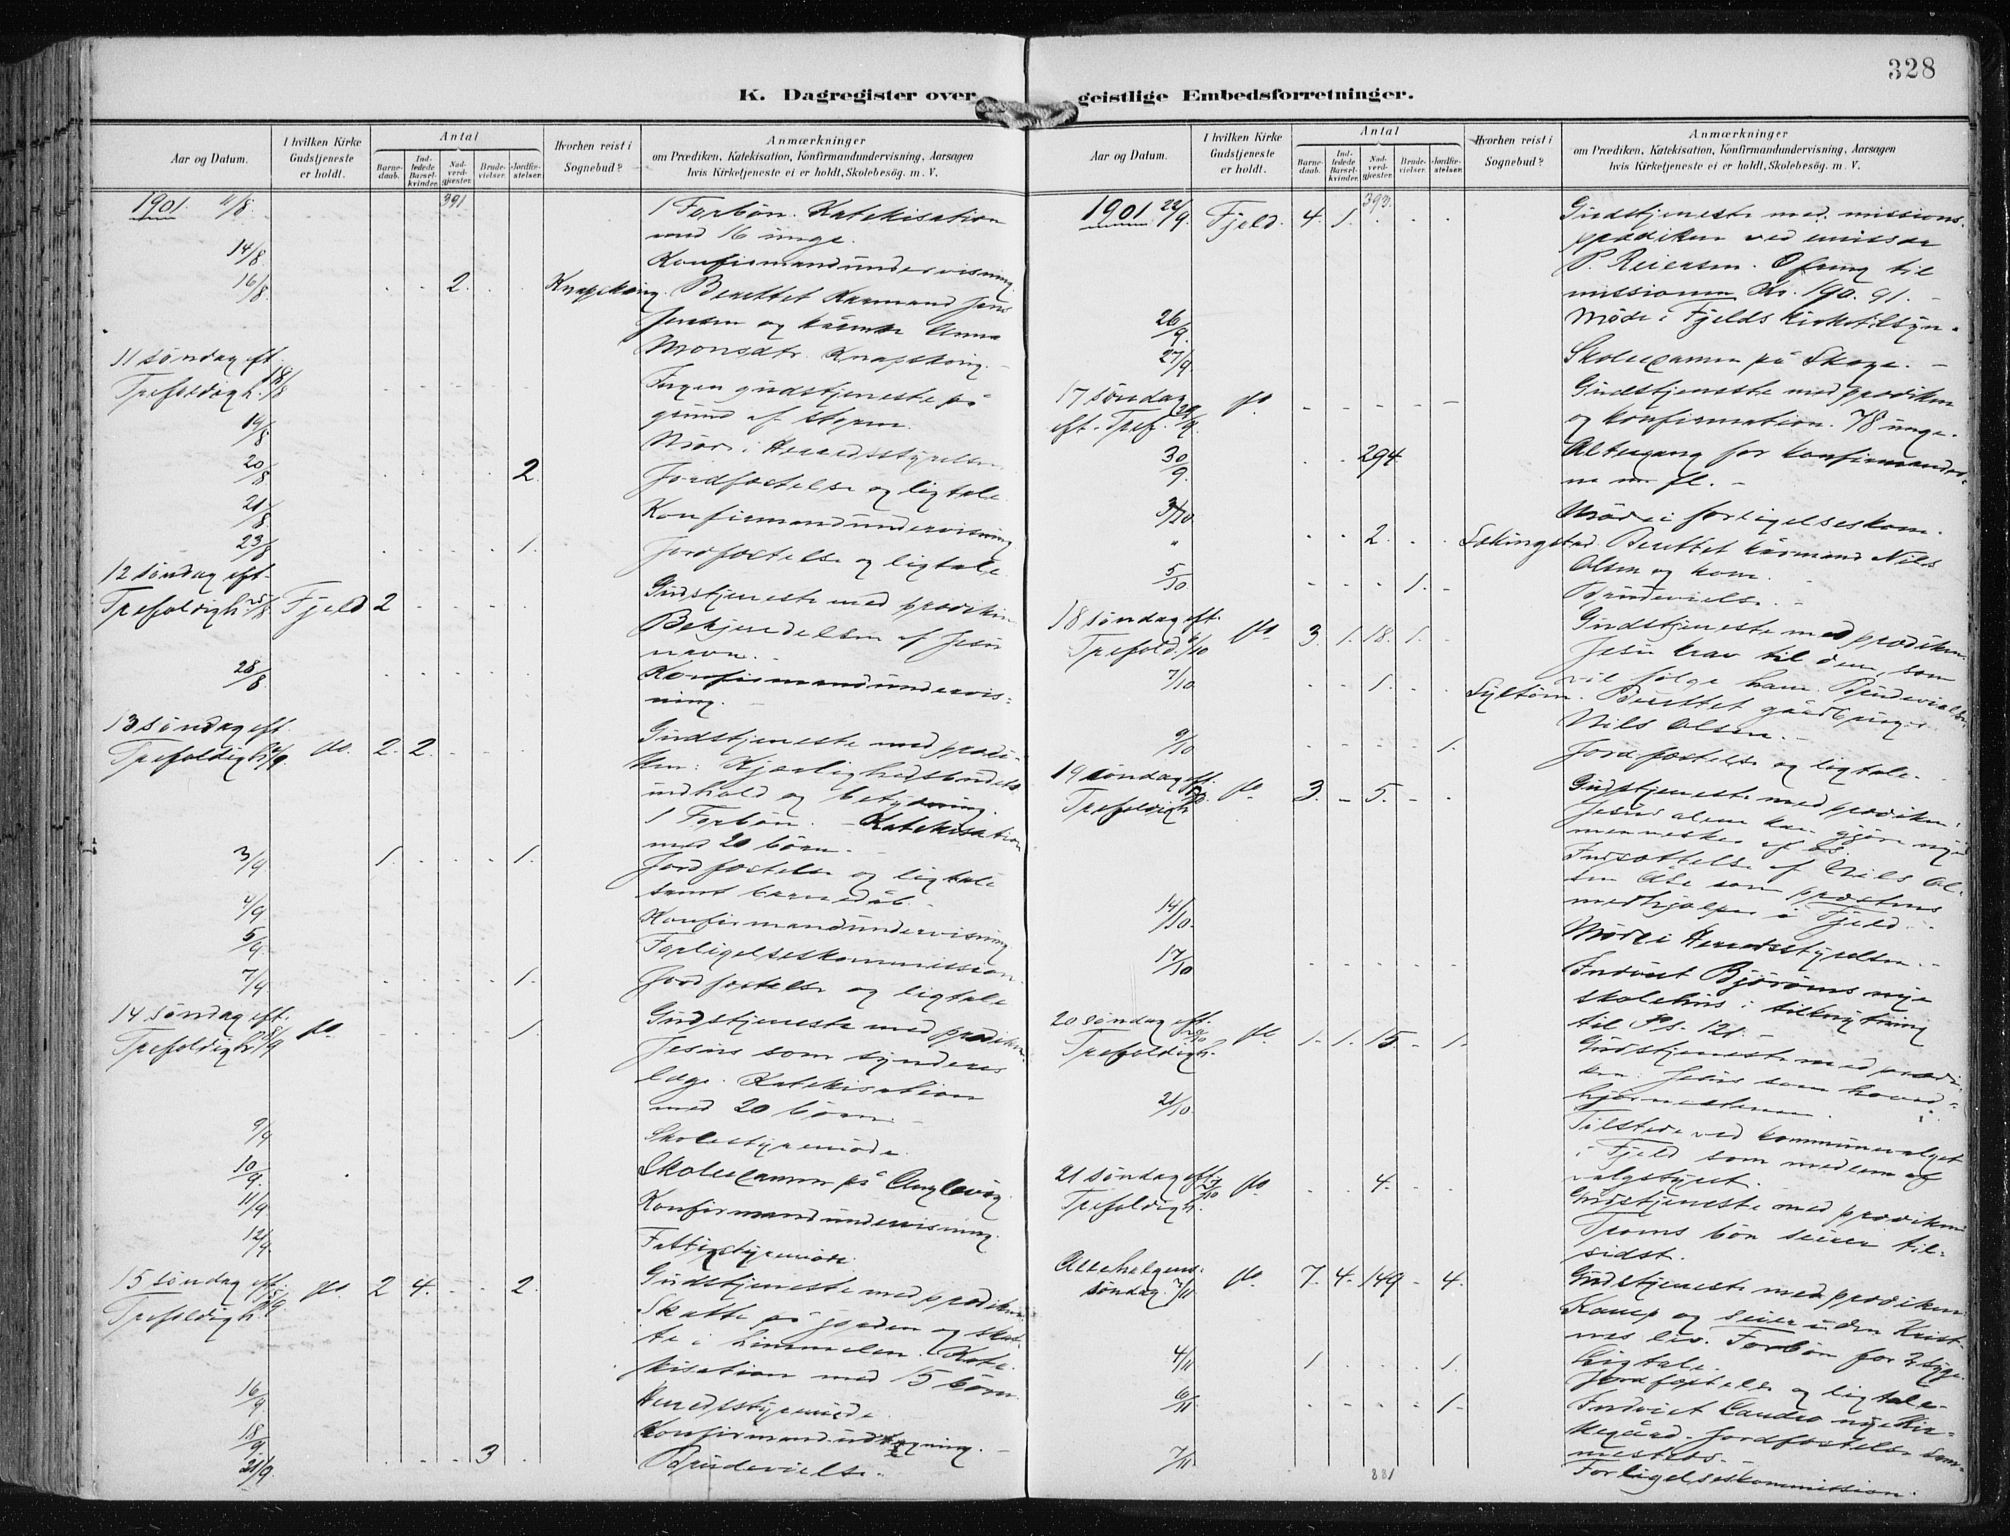 328
K. Dagregister over geistlige Embedsforretninger.
Aar og Datum.
I hvilken Kirke Gudstjeneste er holdt.
Antal
Barnedaab.
Indledede Barselkvinder.
Nadverdgjester.
Brudevielser.
Jordfæstelser.
Hvorhen reist i Sognebud?
Anmærkninger
om Prædiken, Katekisation, Konfirmandundervisning, Aarsagen
hvis Kirketjeneste ei er holdt, Skolebesøg. m. V.
1901. 11/8. 391 1 Forbøn. Katekisation
med 16 unge.
14/8. Konfirmandundervisning
16/8 2. Knapskog. Berettet Kaarmand Jens
Jensen og kårenke Anna
Monsdtr. Knapskog.
11 søndag eft.
Trefoldigh. 18/8 Ingen gudstjeneste på
grund af storm.
19/8 Møde i Herredsstyrelsen
20/8 2. Jordfæstelse og ligtale.
21/8 Konfirmandundervisning
23/8 1. Jordfæstelse og ligtale
12 søndag eft.
Trefoldigh. 25/8 Fjeld 2 Gudstjeneste med prædiken
Bekjendelsen af Jesu
navn.
28/8 Konfirmandundervis-
ning.
13 søndag eft.
Trefoldigh. 1/9 do. 2. 2. Gudstjeneste med prædi-
ken: Kjærlighedsbudets
indhold og betydning.
1 Forbøn. - Katekisation
med 20 børn.
3/9 1. 1. Jordfæstelse og ligtale
samt barnedåb.
4/9 Konfirmandundervisning
5/9 Forligelseskommission.
7/9 1. Jordfæstelse og ligtale
14 søndag eft.
Trefoldigh. 8/9 do. 1. Gudstjeneste med prædiken:
Jesus som synderes
læge. Katekisation
med 20 børn.
9/9 Skolestyremøde.
10/9. Skoleexamen på Anglevig.
11/9 Konfirmandundervisning.
12/9 Fattigstyremøde.
15 søndag eft.
Trefoldigh. 15/9 do. 2 4. 2. Gudstjeneste med prædiken:
Skatte på jorden og skat-
te i himmelen. Kate-
kisation med 15 børn.
16/9 Herredsstyremøde.
18/9 Konfirmandundervisning.
21/9 3 Brudevielse.
Aar og Datum.
I hvilken Kirke Gudstjeneste er holdt.
Antal
Barnedaab.
Indledede Barselkvinder.
Nadverdgjester.
Brudevielser.
Jordfæstelser.
Hvorhen reist i Sognebud?
Anmærkninger
om Prædiken, Katekisation, Konfirmandundervisning, Aarsagen
hvis Kirketjeneste ei er holdt, Skolebesøg. m. V.
1901. 22/9 Fjeld. 4. 1. 393. Gudstjeneste med missions-
prædiken ved emissær
P. Reiersen. Ofring til
missionen Kr. 190.91.
26/9. Møde i Fjelds kirketilsyn.
27/9 Skoleexamen på Skoge.
17 søndag
eft. Tref. 29/9. do. Gudstjeneste med prædiken
og konfirmation. 78 unge.
30/9. 294 Altergang for konfirmander-
ne m. fl.
3/10 Møde i forligelseskom.
" 2. Sekingstad. Berettet kårmand Nils
Olsen og kone.
5/10 1. Brudevielse.
18 søndag eft.
Trefold. 6/10 do. 3. 1. 18. 1. Gudstjeneste med prædiken:
Jesu krav til dem, som
vil følge ham. Brudevielse
7/10. 1. Syltøen. Berettet gårdbruger
Nils Olsen.
9/10 1. Jordfæstelse og ligtale.
19 søndag eft.
Trefoldigh. 13/10. do. 3. 5. Gudstjeneste med prædiken:
Jesus alene kan gjøre nye
mennesker af os.
Indsættelse af Nils Ol-
sen som præstens
medhjælper i Fjeld.
14/10. Møde i Herredsstyrelsen.
17/10 Indviet Bjorøens nye
skolehus i tilknytning
til Ps. 121.
20 søndag eft.
Trefoldigh. 20/10 do. 1. 1. 15. 1. Gudstjeneste med prædi-
ken: Jesus som hoved-
hjørnestenen.
21/10. Tilstede ved kommunevalget
i Fjeld som medlem af
valgstyret.
21 søndag eft.
Trefoldigh. 27/10 do. 4. Gudstjeneste med prædiken:
Troens bøn seirer til-
sidst.
Allehelgens-
søndag. 3/11 do. 7. 4. 149 4. Gudstjeneste med prædiken:
Kamp og seier i den Krist-
nes liv. Forbøn for 2 syge.
Ligtale.
4/11 1 1. Jordfæstelse og ligtale.
6/11 1. Indviet Landro nye kir-
kegård. Jordfæstelse sam-
mesteds.
7/11 Forligelseskommission.
881